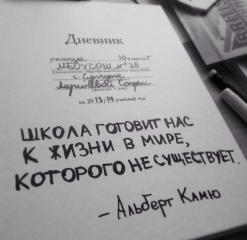 Дневник
учени 10 класса Г
МБУСОШ № 28
на 20 13/14 учебный год
ШКОЛА ГОТОВИТ НАС
К ЖИЗНИ В МИРЕ,
КОТОРОГО НЕ СУЩЕСТВУЕТ.
- АЛЬБЕРТ КАМЮ